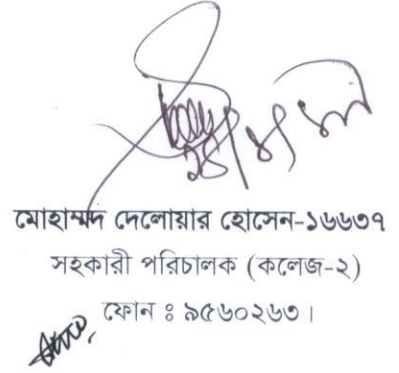 মোহাম্মদ দেলোয়ার হোসেন-১৬৬৩৭
সহকারী পরিচালক (কলেজ-২)
ফোন ঃ ৯৫৬০২৬৩।